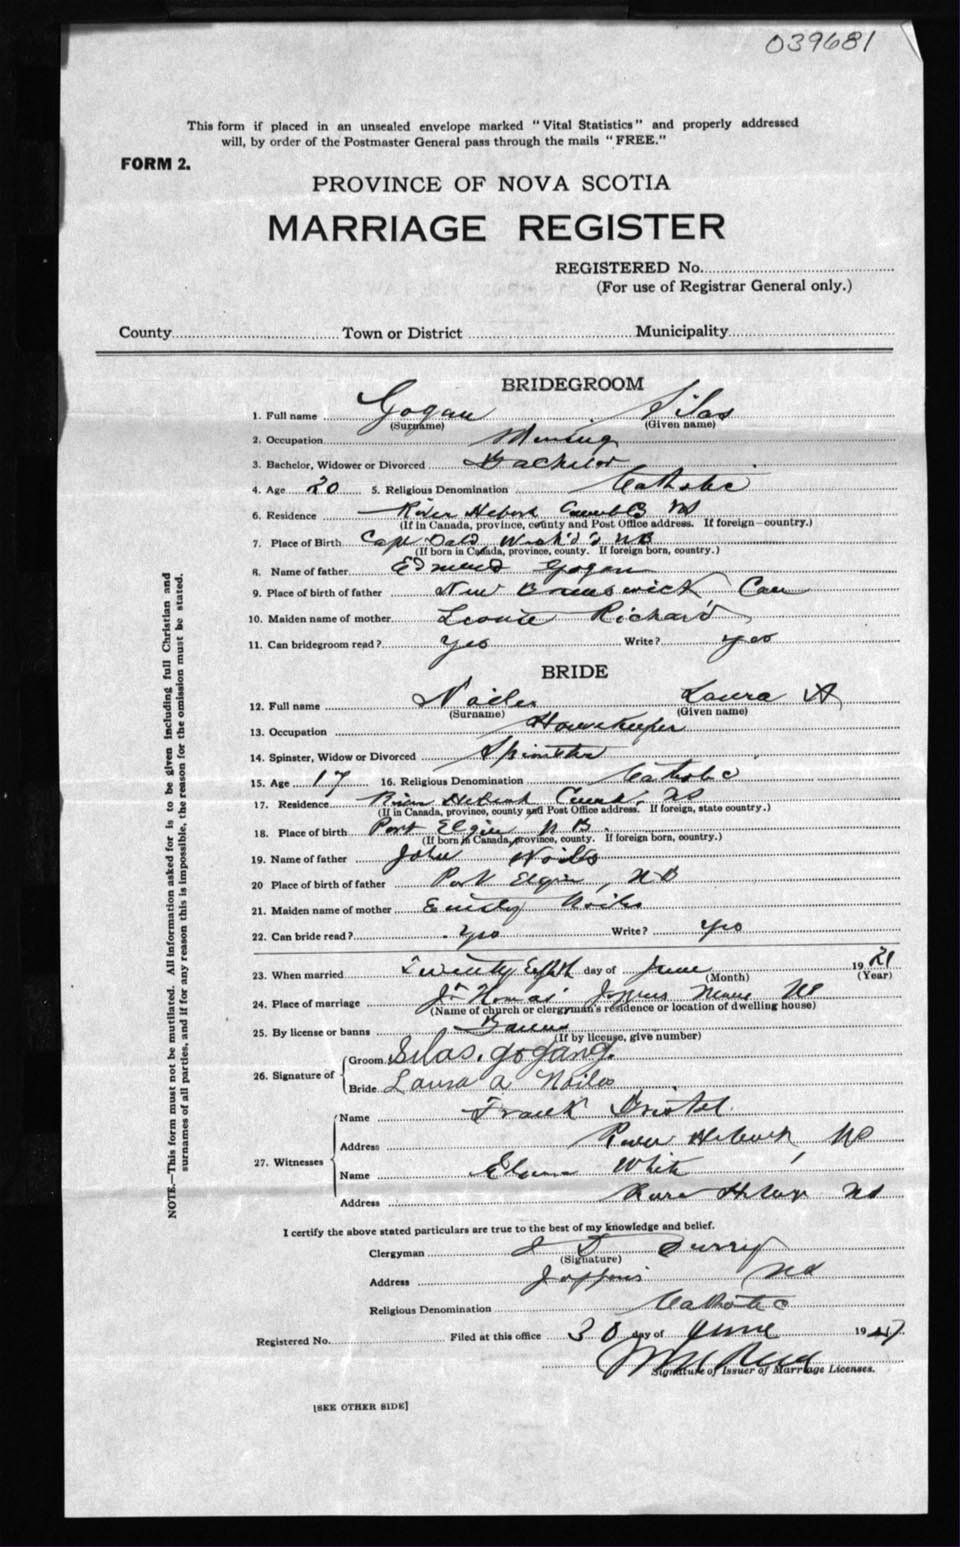 039681
This form if placed in an unsealed envelope marked "Vital Statistics" and properly addressed
will, by order of the Postmaster General pass through the mails "FREE."
FORM 2.
PROVINCE OF NOVA SCOTIA
MARRIAGE REGISTER
REGISTERED No.
(For use of Registrar General only.)
County Town or District Municipality
BRIDEGROOM
1. Full name Gogan Silas
(Surname) (Given name)
2. Occupation Mining
3. Bachelor, Widower or Divorced Bachelor
4. Age 20 5. Religious Denomination Catholic
6. Residence River Hebert NS
(If in Canada, province, county and Post Office address. If foreign—country.)
7. Place of Birth Cape NB
(If born in Canada, province, county. If foreign born, country.)
8. Name of father Edmund Gogan
9. Place of birth of father New Brunswick, Can
10. Maiden name of mother Richard
11. Can bridegroom read? Yes Write? yes
BRIDE
12. Full name Noiles Laura A
(Surname) (Given name)
13. Occupation Housekeeper
14. Spinster, Widow or Divorced Spinster
15. Age 17 16. Religious Denomination Catholic
17. Residence River Hebert NS
(If in Canada, province, county and Post Office address. If foreign, state country.)
18. Place of birth Port Elgin N B.
(If born in Canada, province, county. If foreign born, country.)
19. Name of father John Noiles
20 Place of birth of father Port Elgin, NB
21. Maiden name of mother Emily Noiles
22. Can bride read? Yes Write? Yes
23. When married Twenty Eighth day of June 19
(Month) (Year)
24. Place of marriage Joggins Mines NS
(Name of church or clergyman's residence or location of dwelling house)
25. By license or banns Banns
(If by license, give number)
26. Signature of Groom Silas. gogang.
Bride Laura A Noiles
27. Witnesses Name Frank
Address River Hebert, NS
Name White
Address River Hebert NS
I certify the above stated particulars are true to the best of my knowledge and belief.
Clergyman
(Signature)
Address Joggins NS
Religious Denomination Catholic
Registered No. Filed at this office 30 day of June 19
Signature of Issuer of Marriage Licenses.
[SEE OTHER SIDE]
NOTE.—This form must not be mutilated. All information asked for is to be given including full Christian and
surnames of all parties, and if for any reason this is impossible, the reason for the omission must be stated.